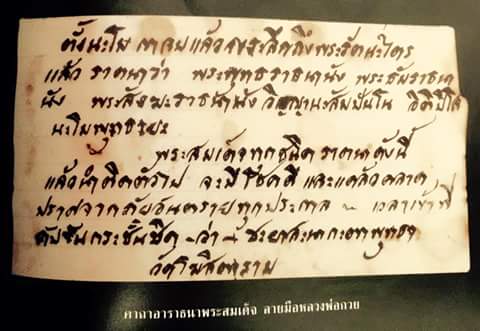 ตั้งนะโม ๓ จบแล้ว ระลึกถึงพระรัตนะไตร
แล้ว ราตนาว่า พระพุทธราธนานัง พระธัมราธนา
นัง พระสังฆะราธนานัง วิญญานะสัมปันโน อิติปิโส
นะโมพุทธายะ
พระสมเด็จทุกชนิด ราตนาดังนี้
แล้วนำติดตัวไป จะมีโชคดี และแคล้วคลาด
ปราศจากภัยอันตรายทุกประการ เวลาเข้าที่
คับขันกระชั้นชิด ว่า
คาถาอาราธนาพระสมเด็จ ลายมือหลวงพ่อกวย